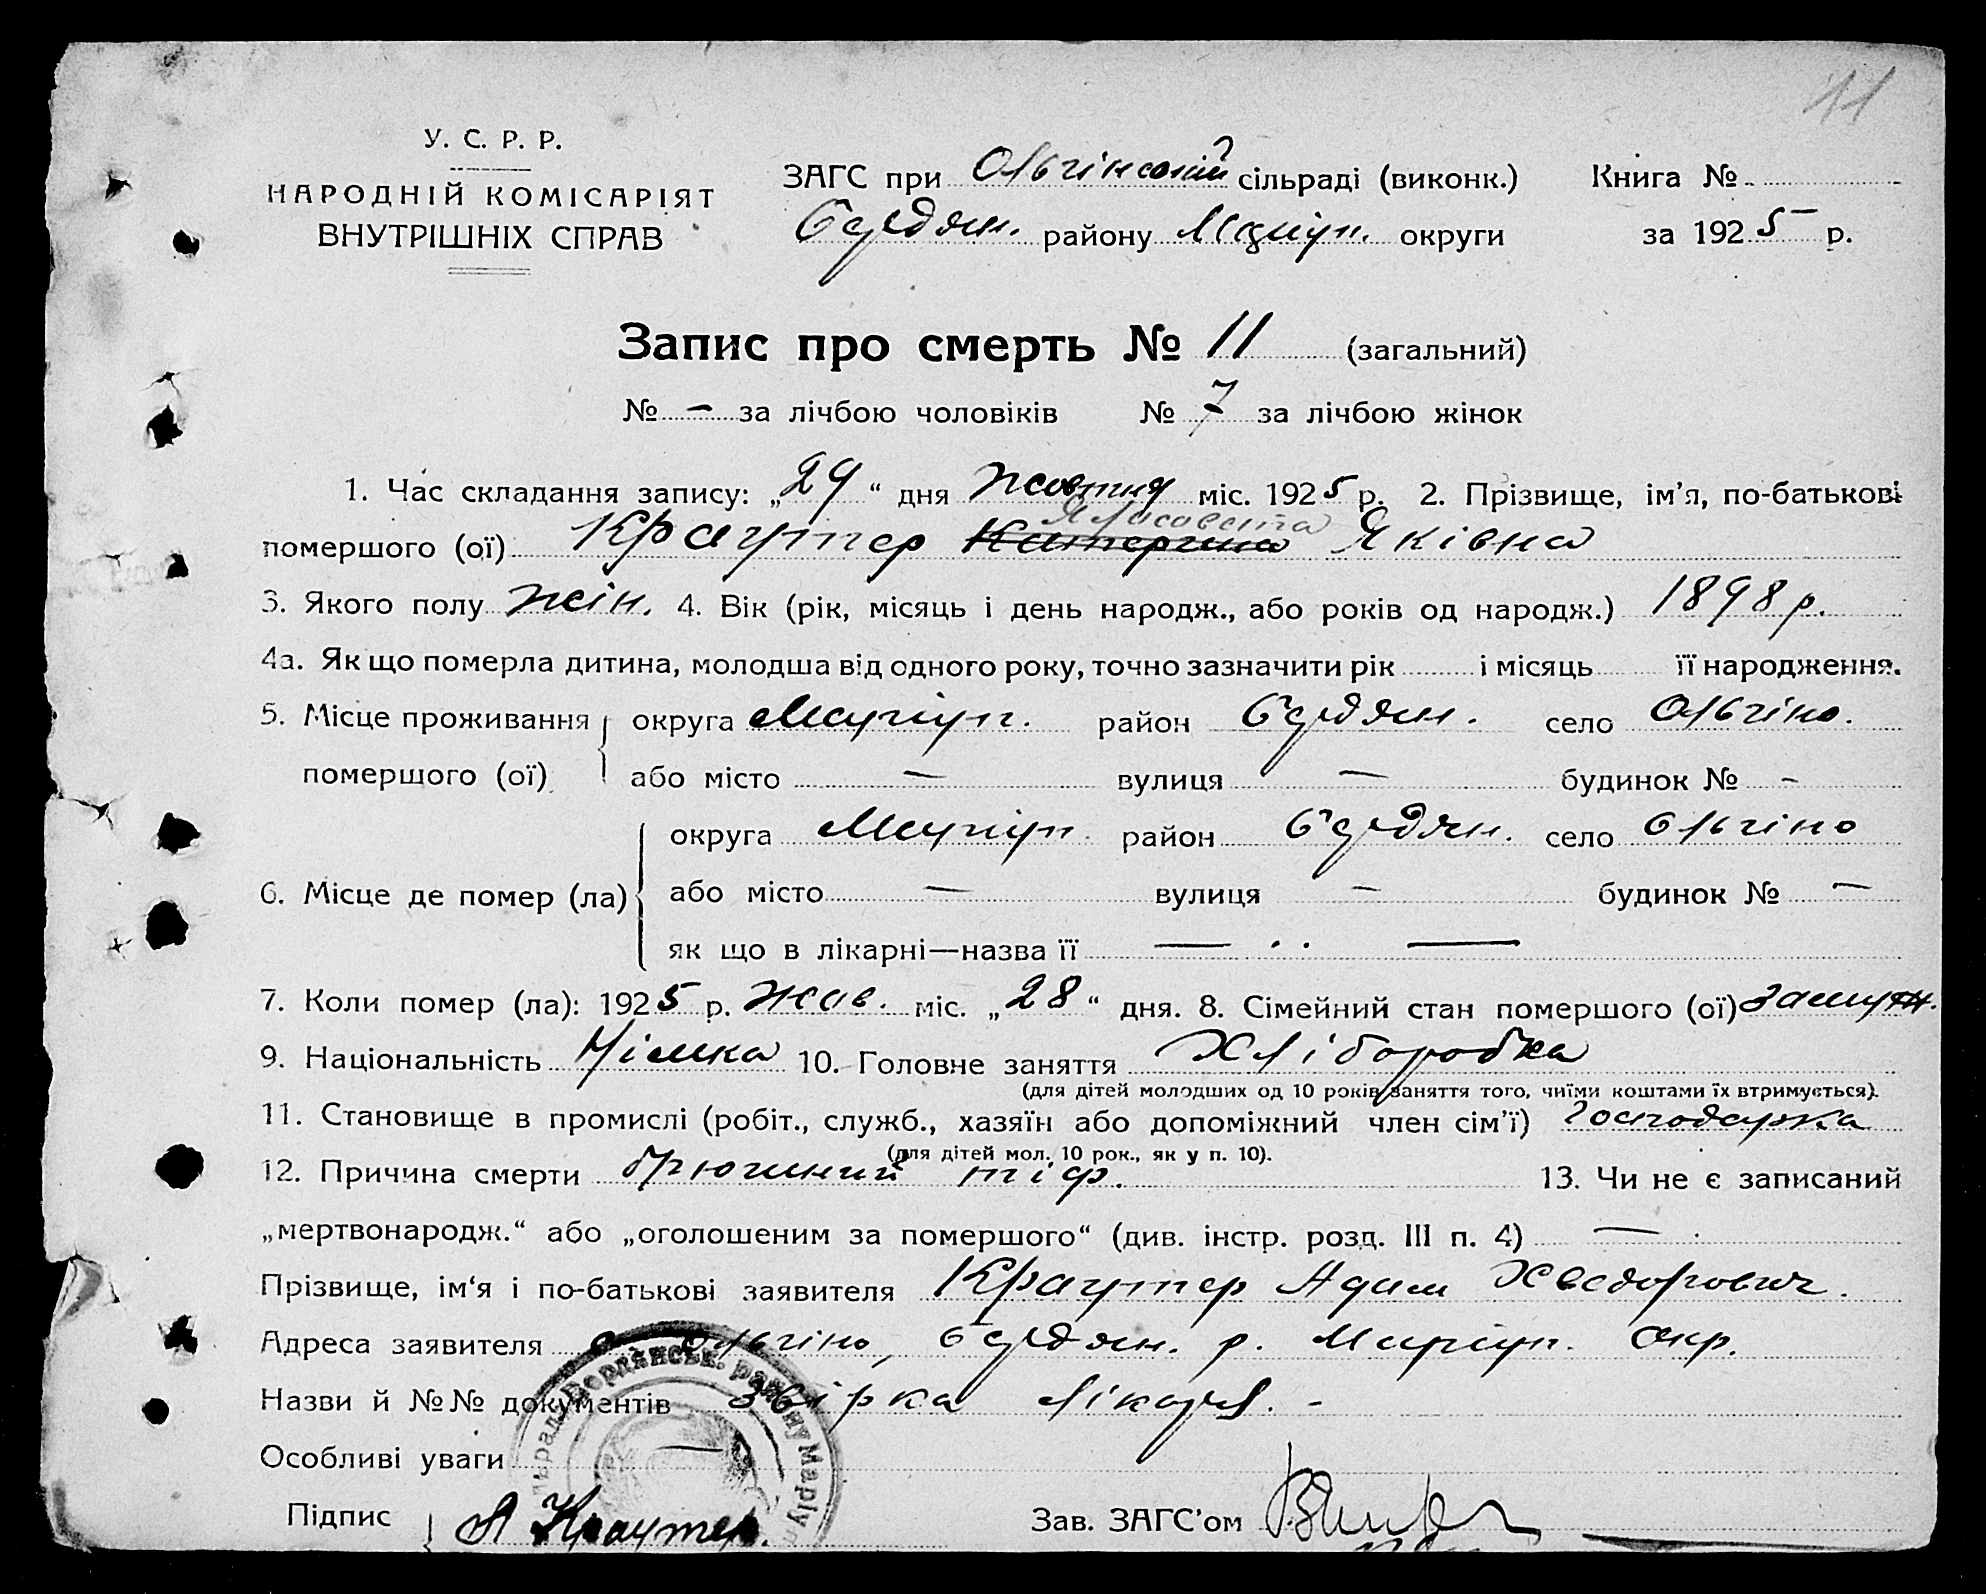 11
У. С. Р. Р.
НАРОДНІЙ КОМІСАРІЯТ
ВНУТРІШНІХ СПРАВ
ЗАГС при Ольгінській сільраді (виконк.)
Бердян. району Маріуп. округи
Книга №
за 1925 р.
Запис про смерть № 11 (загальний)
№ — за лічбою чоловіків № 7 за лічбою жінок
1. Час складання запису: „29“ дня жовтня міс. 1925 р. 2. Прізвище, ім'я, по-батькові
помершого (ої) Краутер Катерина Ялисовета Яківна
3. Якого полу жін. 4. Вік (рік, місяць і день народж., або років од народж.) 1898 р.
4а. Як що померла дитина, молодша від одного року, точно зазначити рік і місяць її народження.
5. Місце проживання округа Маріуп. район Бердян. село Ольгіно.
помершого (ої) або місто — вулиця — будинок № -
округа Маріуп. район Бердян. село Ольгіно
6. Місце де помер (ла) або місто — вулиця — будинок № —
як що в лікарні—назва її — —
7. Коли помер (ла): 1925 р. жов. міс. „28“ дня. 8. Сімейний стан помершого (ої) Замуж.
9. Національність Німка 10. Головне заняття Хліборобка
(для дітей молодших од 10 років заняття того, чиїми коштами їх втримується).
11. Становище в промислі (робіт., служб., хазяїн або допоміжний член сім'ї) господарка
(для дітей мол. 10 рок., як у п. 10).
12. Причина смерти брюшний тіф. 13. Чи не є записаний
„мертвонародж.“ або „оголошеним за помершого“ (див. інстр. розд. III п. 4) —
Прізвище, ім'я і по-батькові заявителя Краутер Адам Хведорович.
Адреса заявителя с. Ольгіно, Бердян. р. Маріуп. окр.
Назви й №№ документів звірка лікаря. -
Особливі уваги —
Підпис А Краутер.
Зав. ЗАГС'ом
Бордянськ. району Маріу